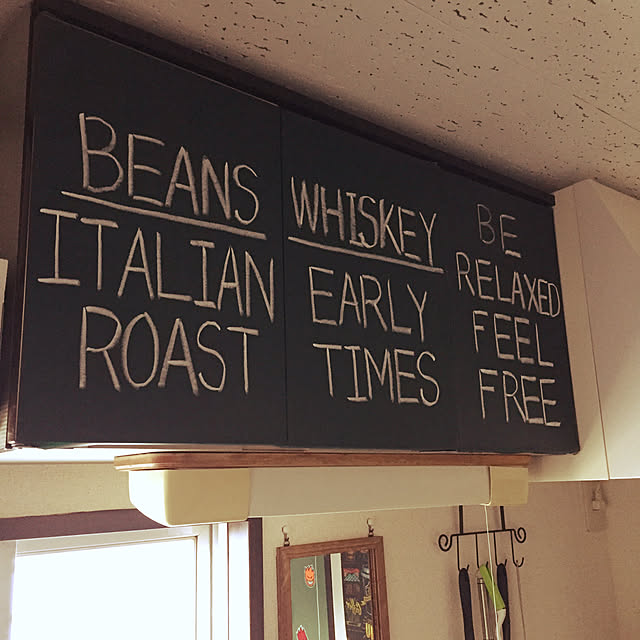 BEANS
ITALIAN
ROAST
WHISKEY
EARLY
TIMES
BE
RELAXED
FEEL
FREE